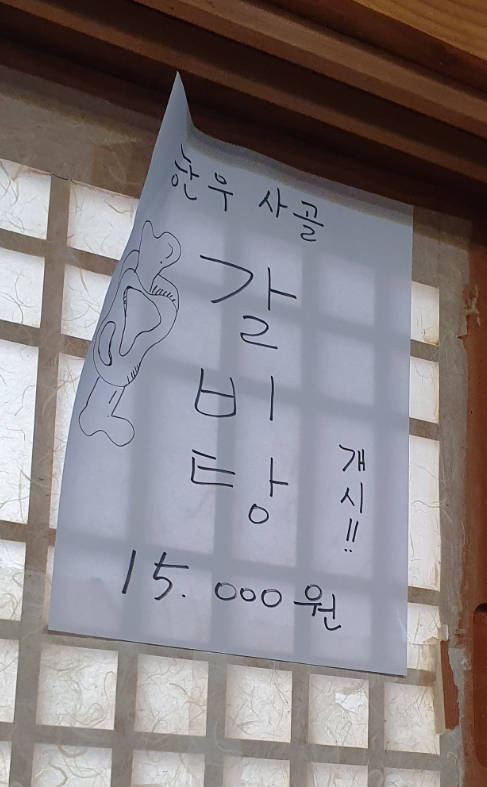 한우 사골
갈
비
탕
개
시!!
15.000원